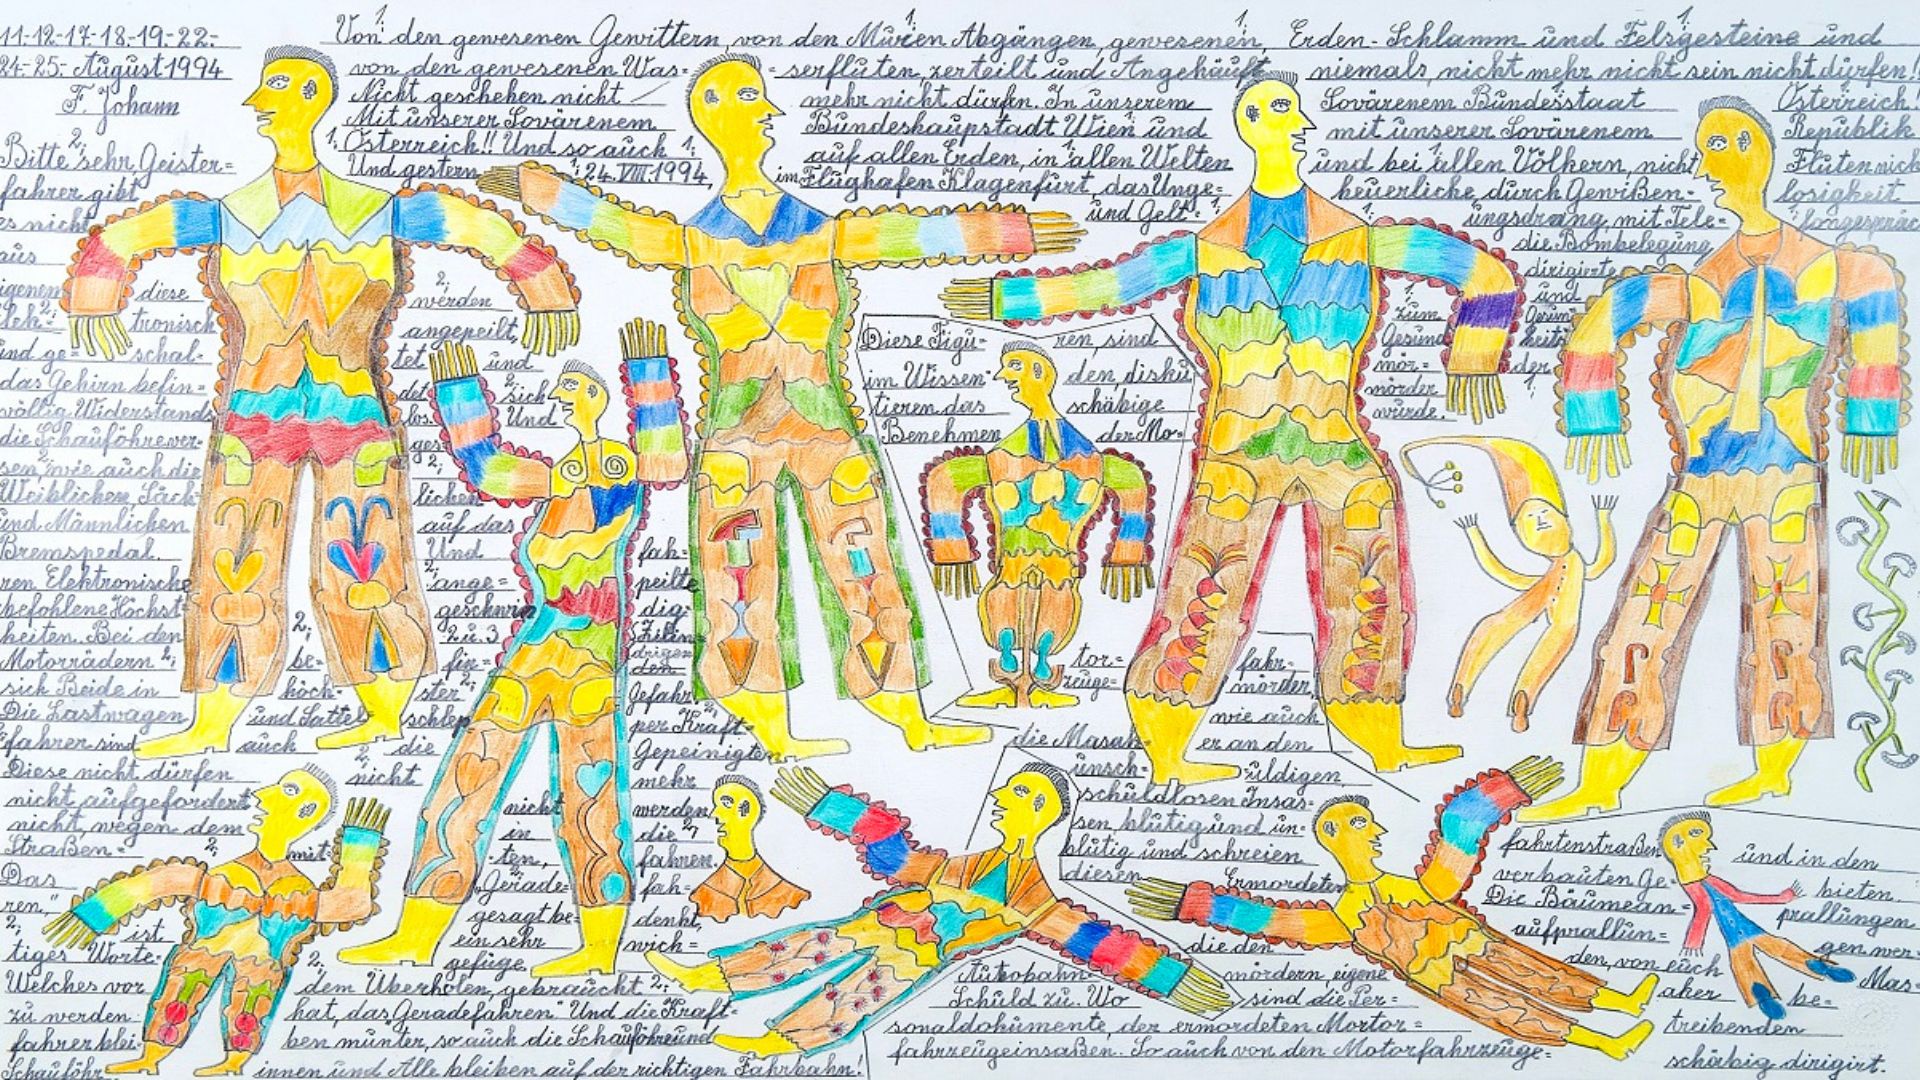 11.-12.-17.-18.-19.-22.-
24.-25.- August 1994
F. Johann
Von den gewesenen Gewittern, von den Muren Abgängen, gewesenen, Erden-Schlamm und Felsgesteine und
von den gewesenen Was=serfluten, zerteilt und Angehäuft niemals, nicht mehr nicht sein nicht dürfen!!
Nicht geschehen nicht mehr nicht dürfen. In unserem Sovärenem Bundesstaat Österreich!
Mit unserer Sovärenem Bundeshauptstadt Wien und mit unserer Sovärenem Republik
1. Österreich!! Und so auch 1. auf allen Erden, in allen Welten und bei allen Völkern, nicht Fluten nich
Und gestern 1. 24. VIII. 1994, im Flughafen Klagenfurt, das Unge=heuerliche, durch Gewißen=losigkeit
und Gelt=ungsdrang, mit Tele=fongespräc
die Bombelegung
dirigierte
und
zum Gesund=heits
mör=der
mörder
würde.
2. Bitte sehr, Geister=
fahrer gibt
es nicht
aus
igenem diese 2. werden
lek=tronisch angepeilt,
und ge=schal=tet und
das Gehirn befin=det 2. sich
völlig Widerstands=los. Und
die Schauföhre ver=ges=
sen, wie auch die
Weiblichen Säch=lichen
und Männlichen auf das
Bremspedal. Und fah=
ren Elektronische ange=peilte
befohlene Höchst=geschwin=dig=
heiten. Bei den 2. 2 u. 3
Motorrädern 2. be=fin=dem
sich Beide in höch=ster Gefahr,
Die Lastwagen und Sattel schlep=per Kraft=
fahrer sind auch die Gepeinigten
Diese nicht dürfen nicht mehr
nicht, aufgefordert nicht werden
nicht, wegen dem in die
Straßen=mit=ten, fahren.
Das „Gerade=fah=
ren,“ ist gesagt be=denkt,
ein sehr wich=
tiges Worte=gefüge
Welches vor dem Überholen, gebraucht
zu werden hat, das Geradefahren.“ Und die Kraft=
fahrer blei=ben munter, so auch die Schauföhre und
Schauföhr=innen und Alle bleiben auf der richtigen Fahrbahn!
Diese Figu=ren, sind
im Wissen=den, disku
tieren das schäbige
Benehmen der Mo=
tor=fahr=
zeuge=mörder,
wie auch
die Masak=er an den
unsch=uldigen,
schuldlosen Insas=
sen blutig und un=
blutig und schreien
diesen Ermordeten
die den
Autobahn=mördern, eigene
Schuld zu. Wo sind die Per=
sonaldokumente, der ermordeten Mortor=
fahrzeuginsaßen. So auch von den Motorfahrzeuge=
fahrtenstraßen und in den
verbauten Ge=bieten.
Die Bäumean=prallungen
aufprallun=gen wer=
den, von euch Mas=
aker be=
treibenden
schäbig dirigirt.